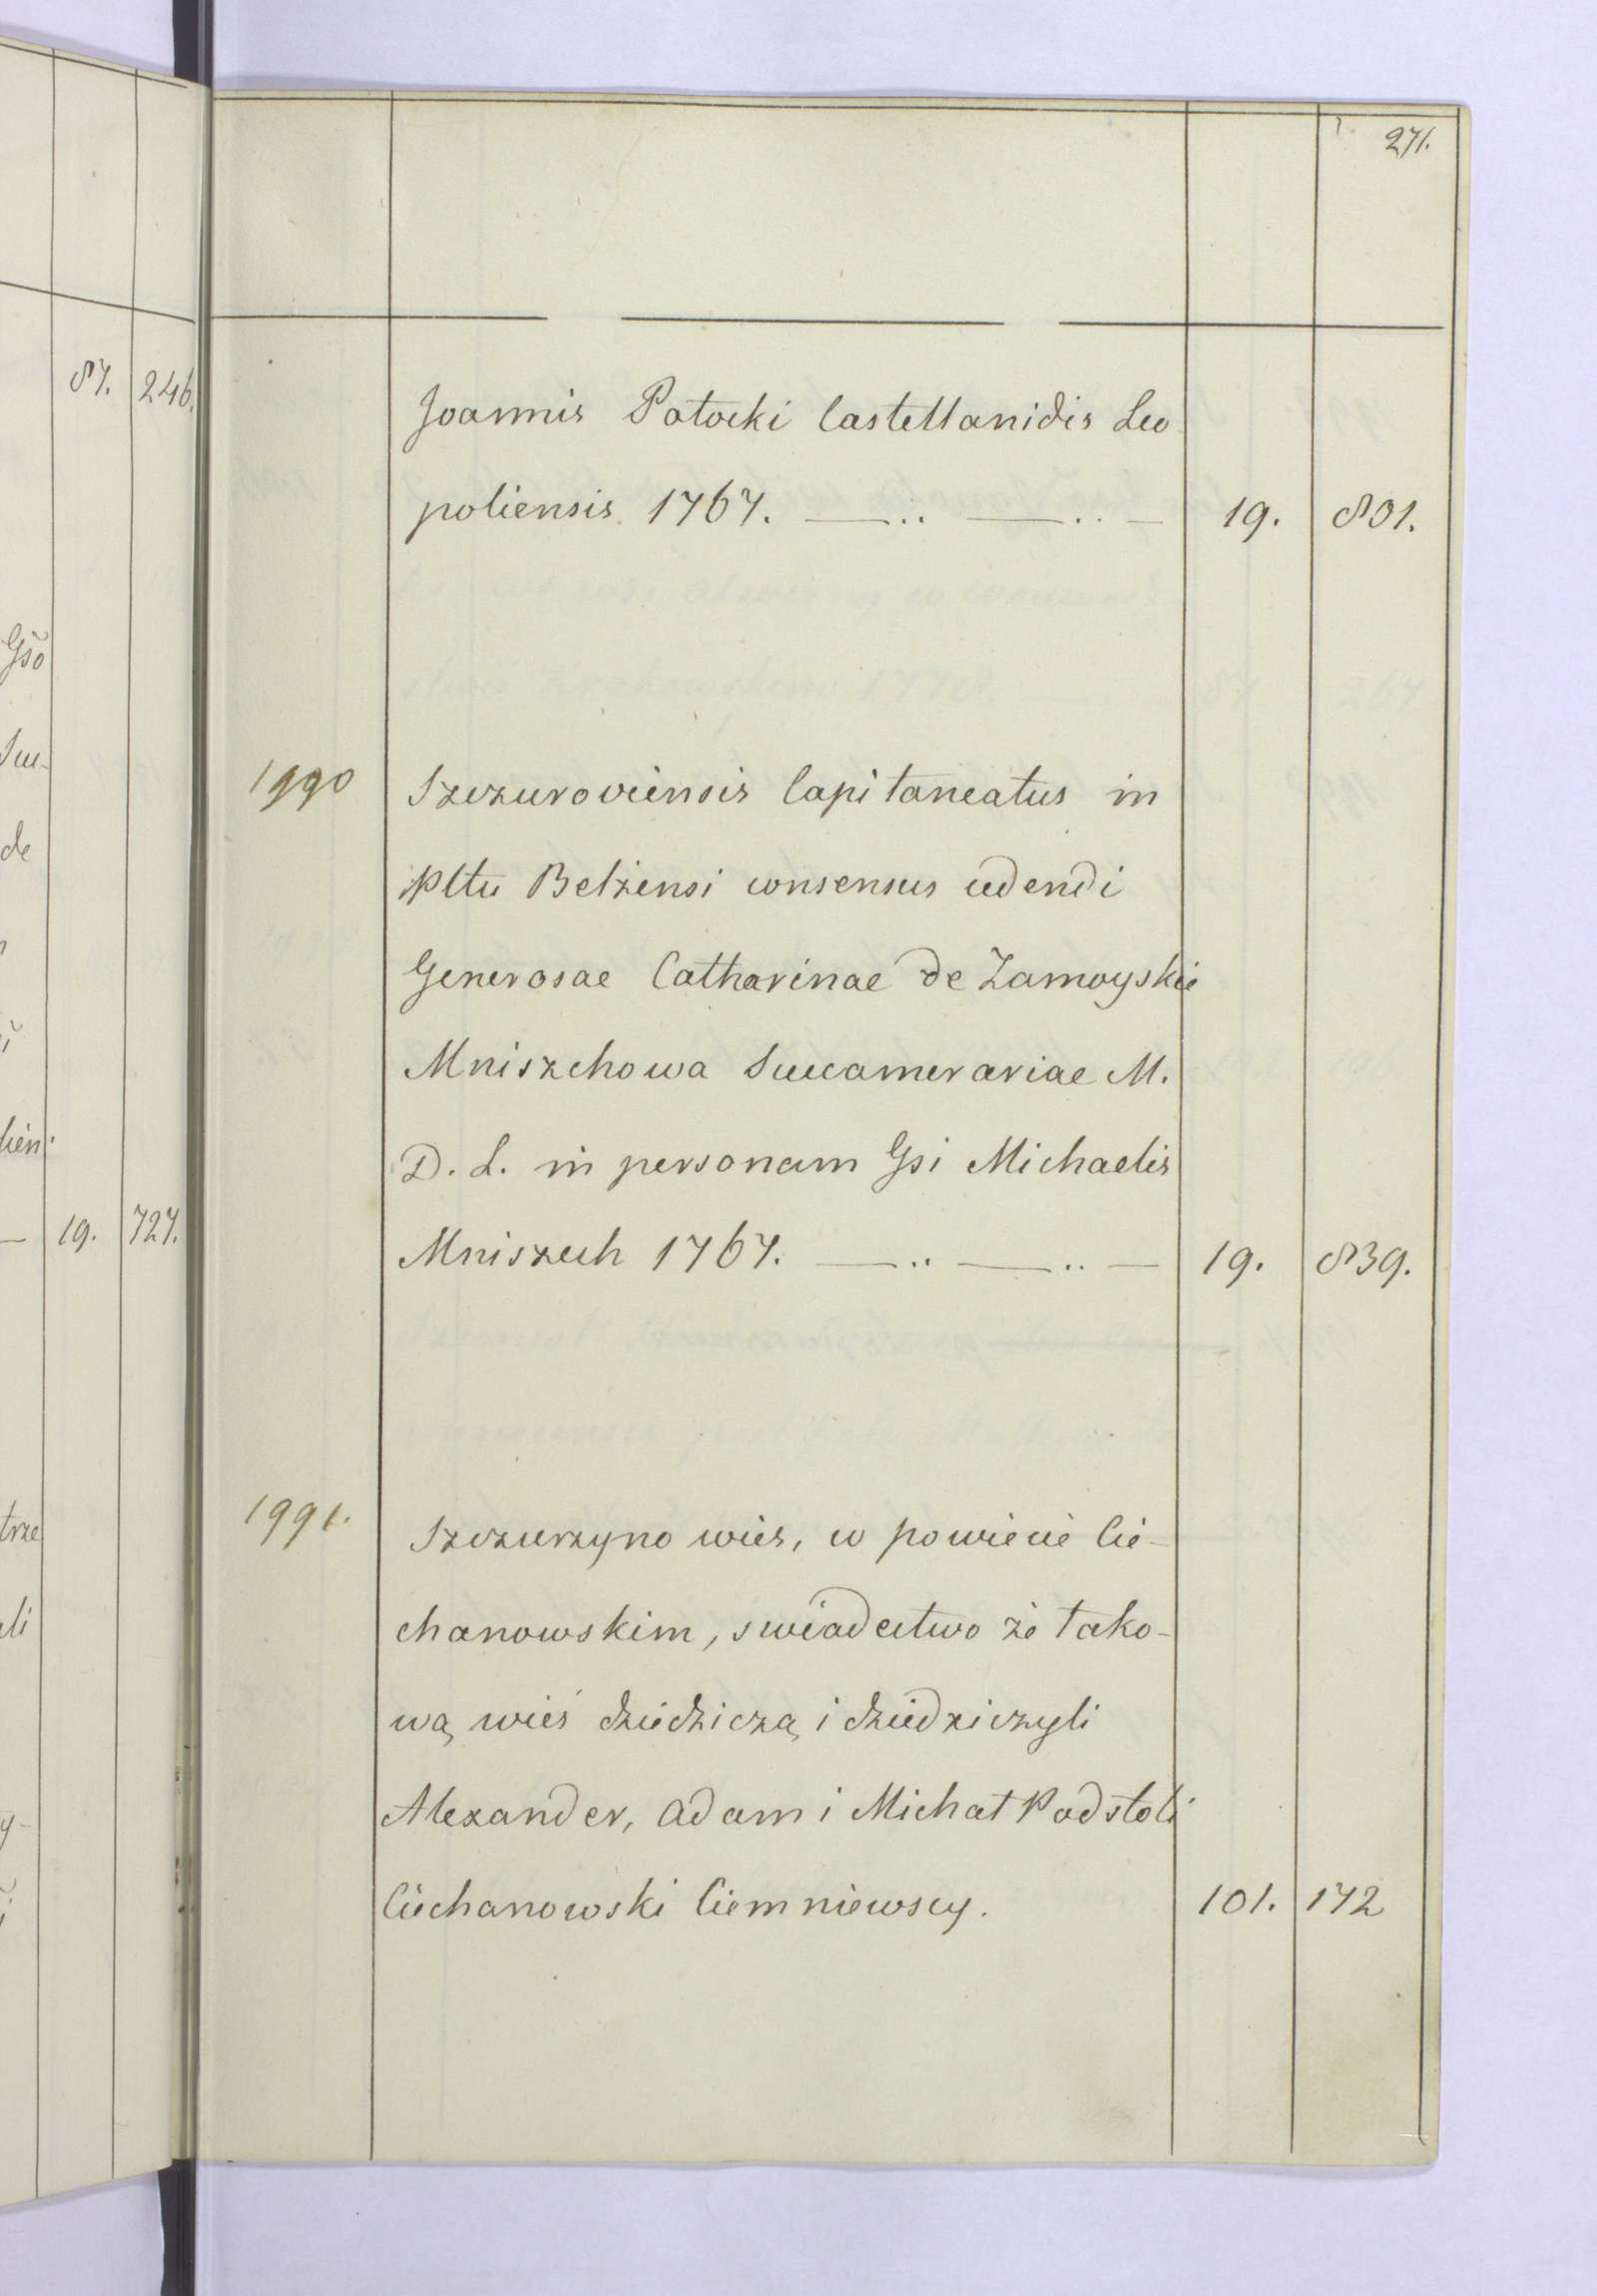 271.
87. 246.
Joannis Potocki Castellanidis Leo
poliensis 1767. —..—..— 19. 801.
Gso
Suc-
1990 Szczuroviensis Capitaneatus in
de
Pltu Belzensi consensus cedendi
Generosae Catharinae de Zamoyskie
Mniszchowa Succamerariae M.
D. L. in personam Gsi Michaelis
19. 727.
Mniszech 1767. —..—..— 19. 839.
1991. Szczurzyno wies, w powiecie Cie-
trze
chanowskim, swiadectwo że tako-
li
wą wieś dziedziczą i dziedziczyli
Alexander, Adam i Michał Podstoli
Ciechanowski Ciemniewscy. 101. 172